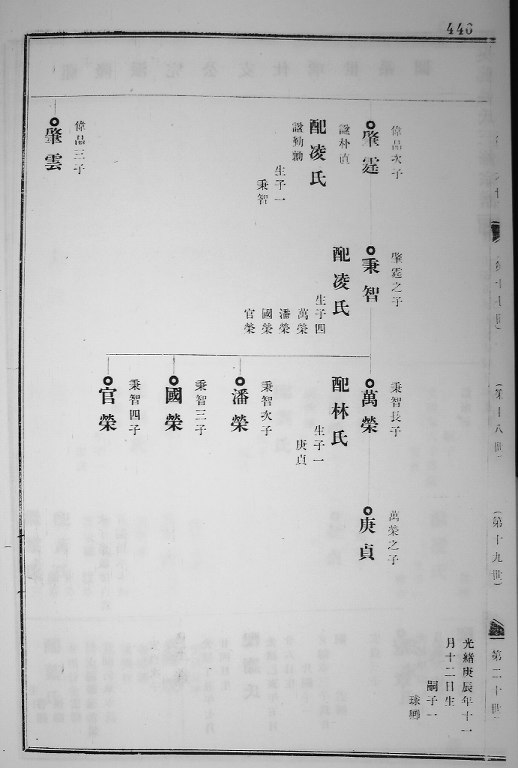 446
偉品次子
肇霆
諡朴直
配凌氏
諡勤勤
生子一
秉智
偉品三子
肇雲
肇霆之子
秉智
配凌氏
生子四
萬榮
潘榮
國榮
官榮
秉智長子
萬榮
配林氏
生子一
庚貞
秉智次子
潘榮
秉智三子
國榮
秉智四子
官榮
萬榮之子
庚貞
光緒庚辰年十一
月十二日生
嗣子一
(第十八世)
(第十九世)
第二十世)